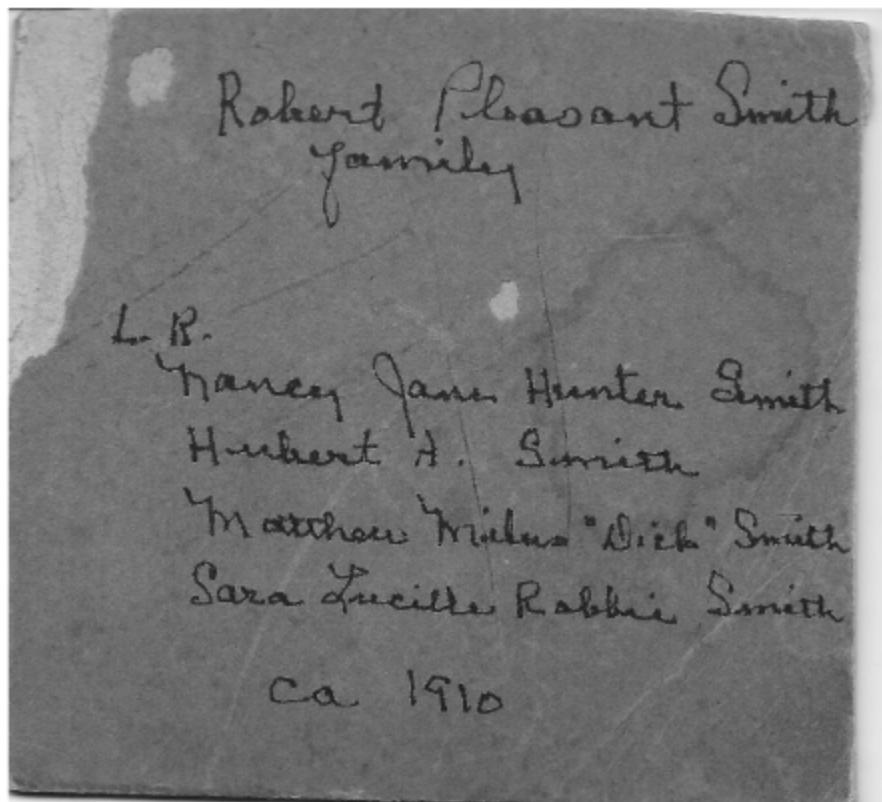 Robert Pleasant Smith
family
L. R.
Nancy Jane Hunter Smith
Hubert A. Smith
Matthew "Dick" Smith
Sara Lucille Robbie Smith
ca 1910